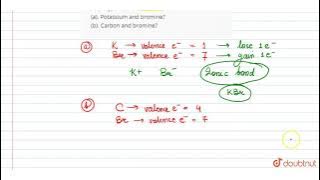 (a). Potassium and bromine?
(b). Carbon and bromine?
(a) K → valence e⁻ = 1 → lose 1e⁻
Br → valence e⁻ = 7 → gain 1e⁻
K+ Br⁻ Ionic bond
KBr
(b) C → valence e⁻ = 4
Br → valence e⁻ = 7
doubtnut